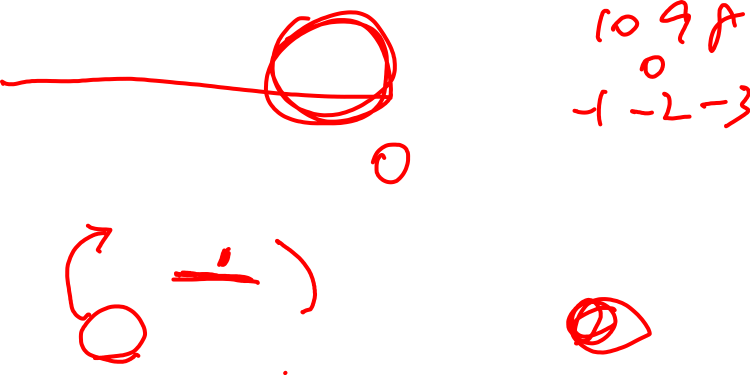 10 9 8
0
-1 -2 -3
0